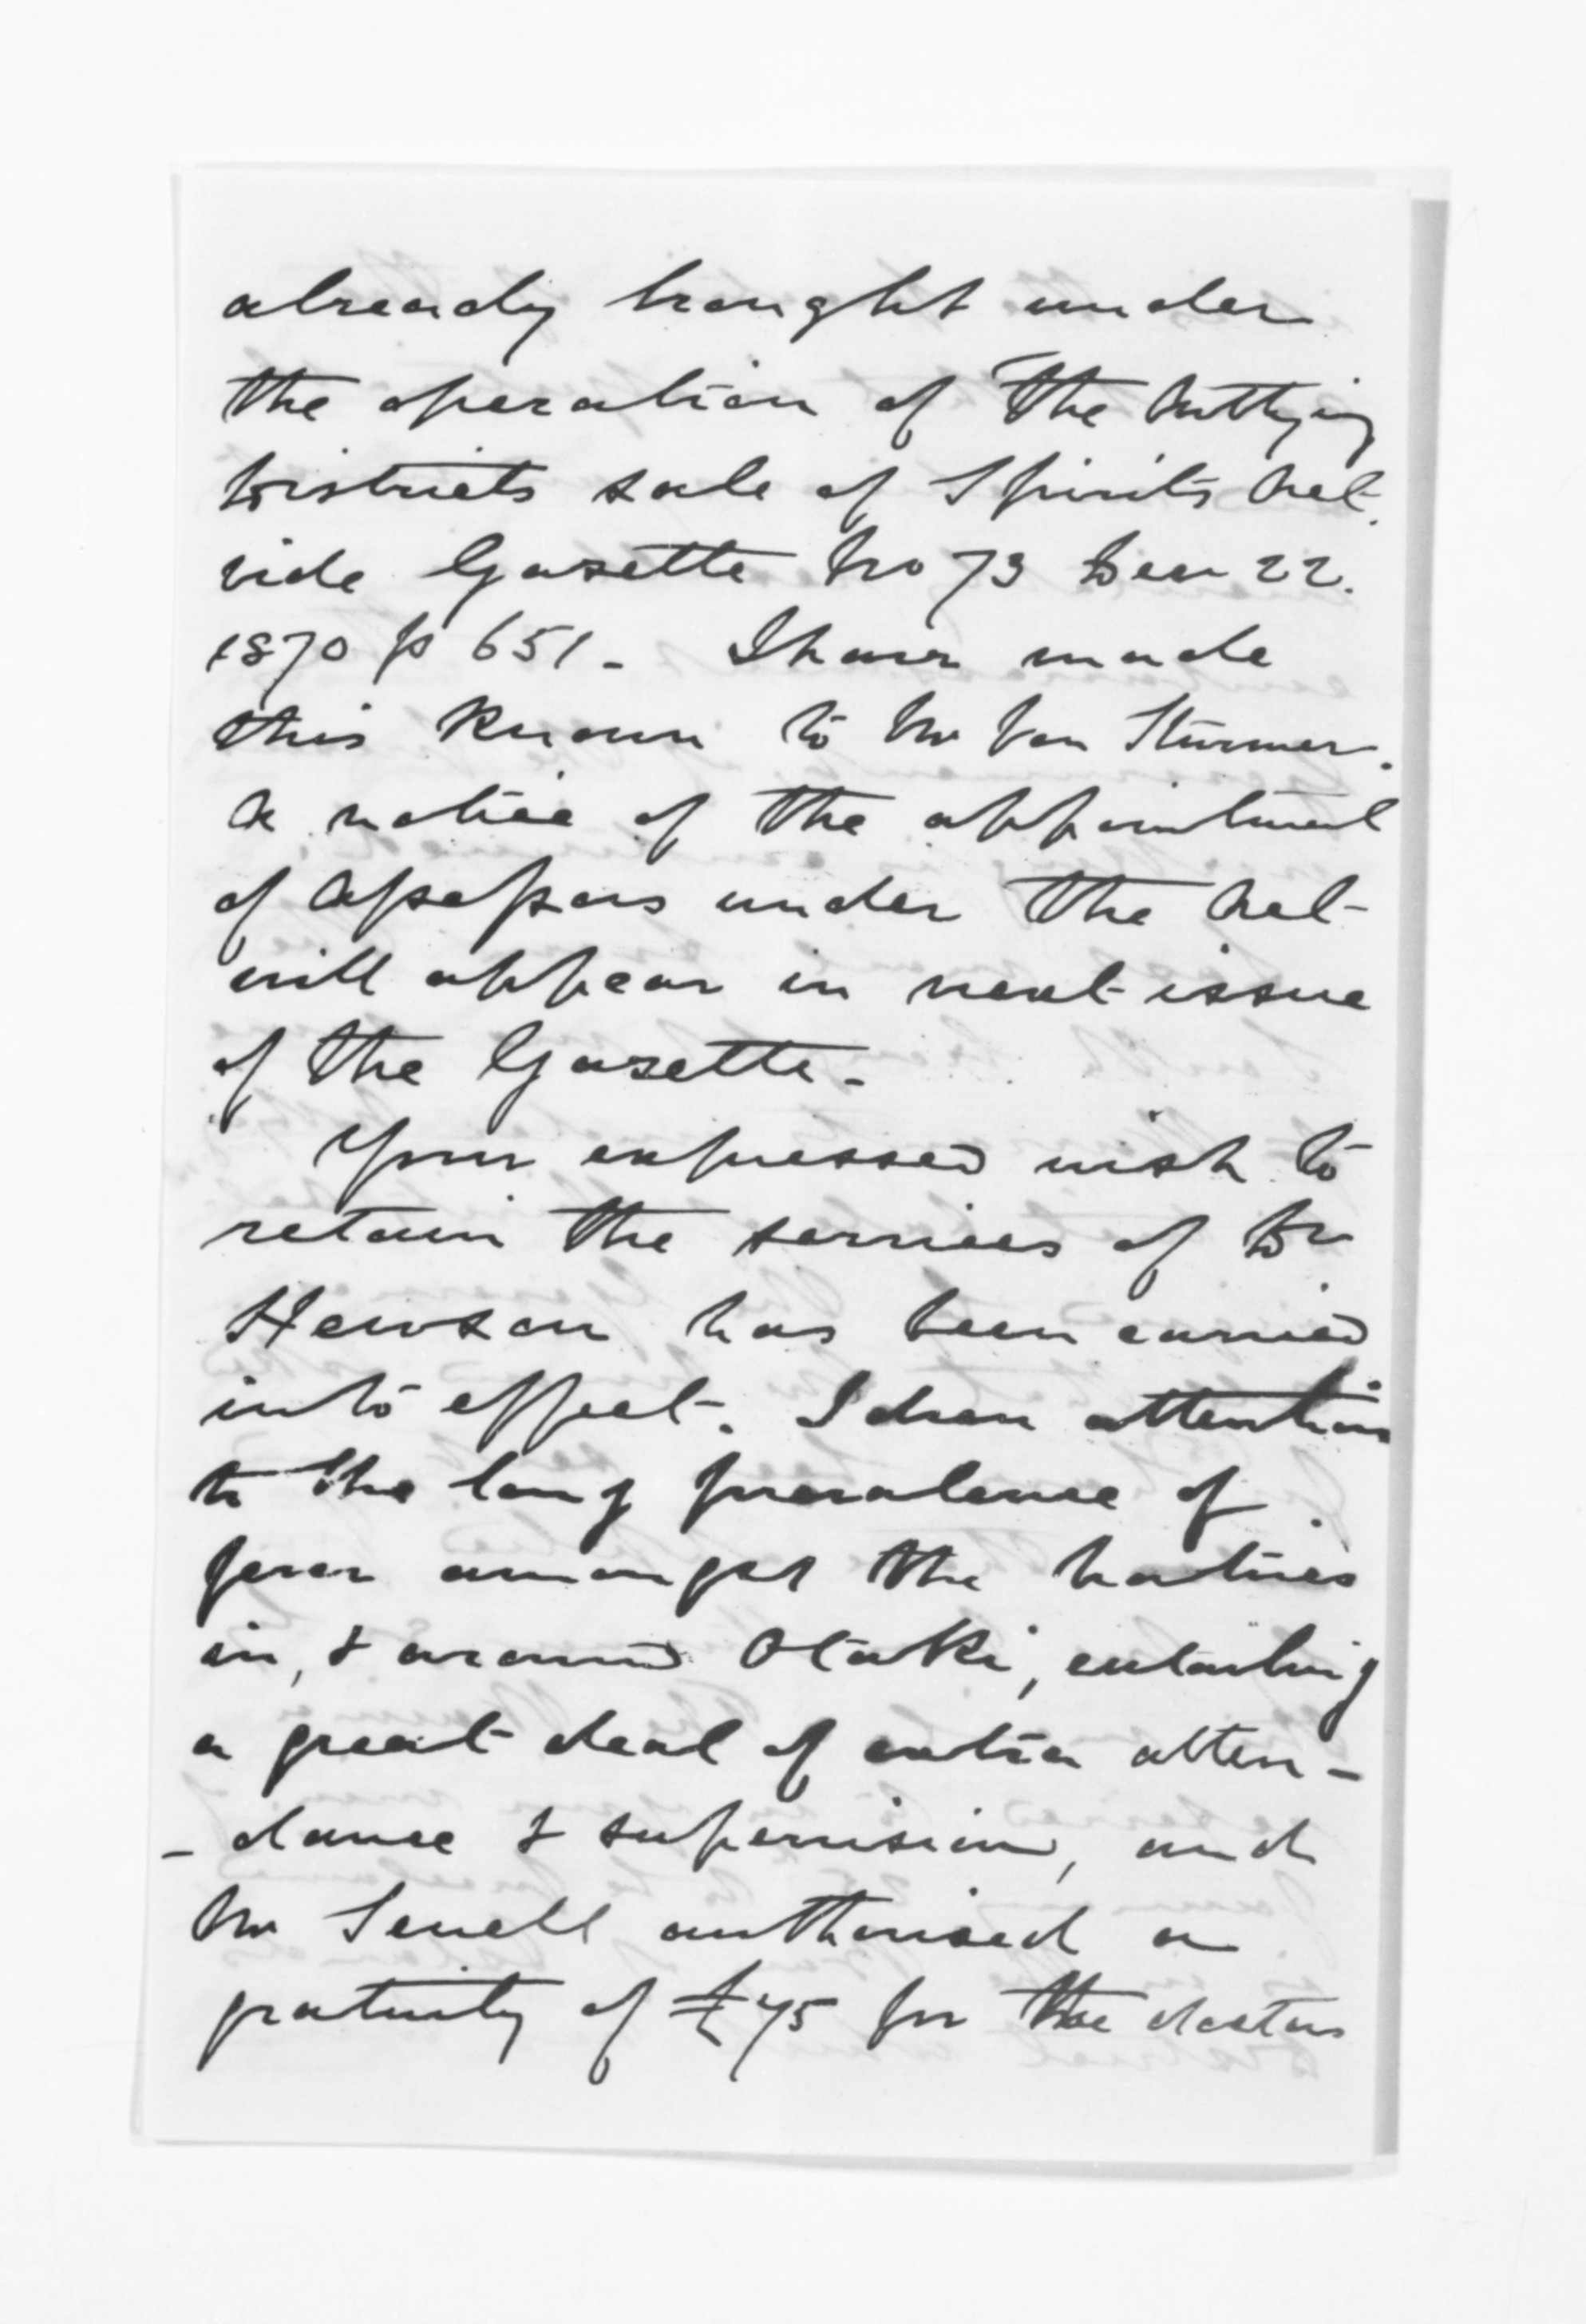 already brought under
the operation of "The Outlying
Districts sale of Spirits Act.
vide Gazette No 73 Dec 22.
1870 p 651 - I have made
this known to Mr Von Stürmer.
A notice of the appointment
of Assessors under the Act
will appear in next issue
of the Gazette -
Your expressed wish to
retain the services of Dr
Hewson has been carried
into effect. I drew attention
to the long prevalence of
fever amongst the natives
in, & around Otaki, entailing
a great deal of extra atten -
- dance & supervision, and
Mr Sewell authorised a
gratuity of £75 for the doctors